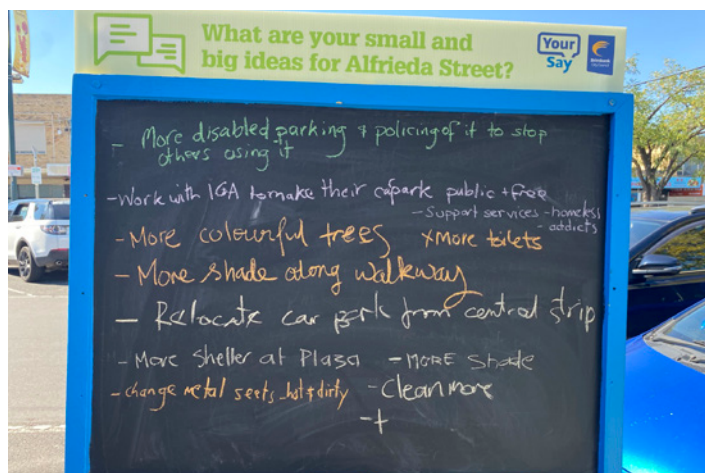 What are your small and
big ideas for Alfrieda Street?
Your
Say
- More disabled parking & policing of it to stop
others using it
- Work with IGA to make their carpark public + free
- Support services - homeless
- addicts
- More colourful trees x More toilets
- More shade along walkway
- Relocate car park from central strip
- More shelter at Plaza - MORE Shade
- change metal seets - hot & dirty - Clean more
- t